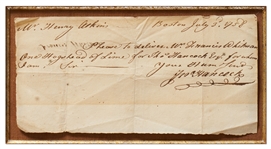 Mr. Henry Atkins Boston July 5. 1758
Please to deliver Mr. Francis Whitman
One Hogshead of Lime for Tho.s Hancock Esq.r for whom
I am Sir
Your Hum. Serv.t
John Hancock